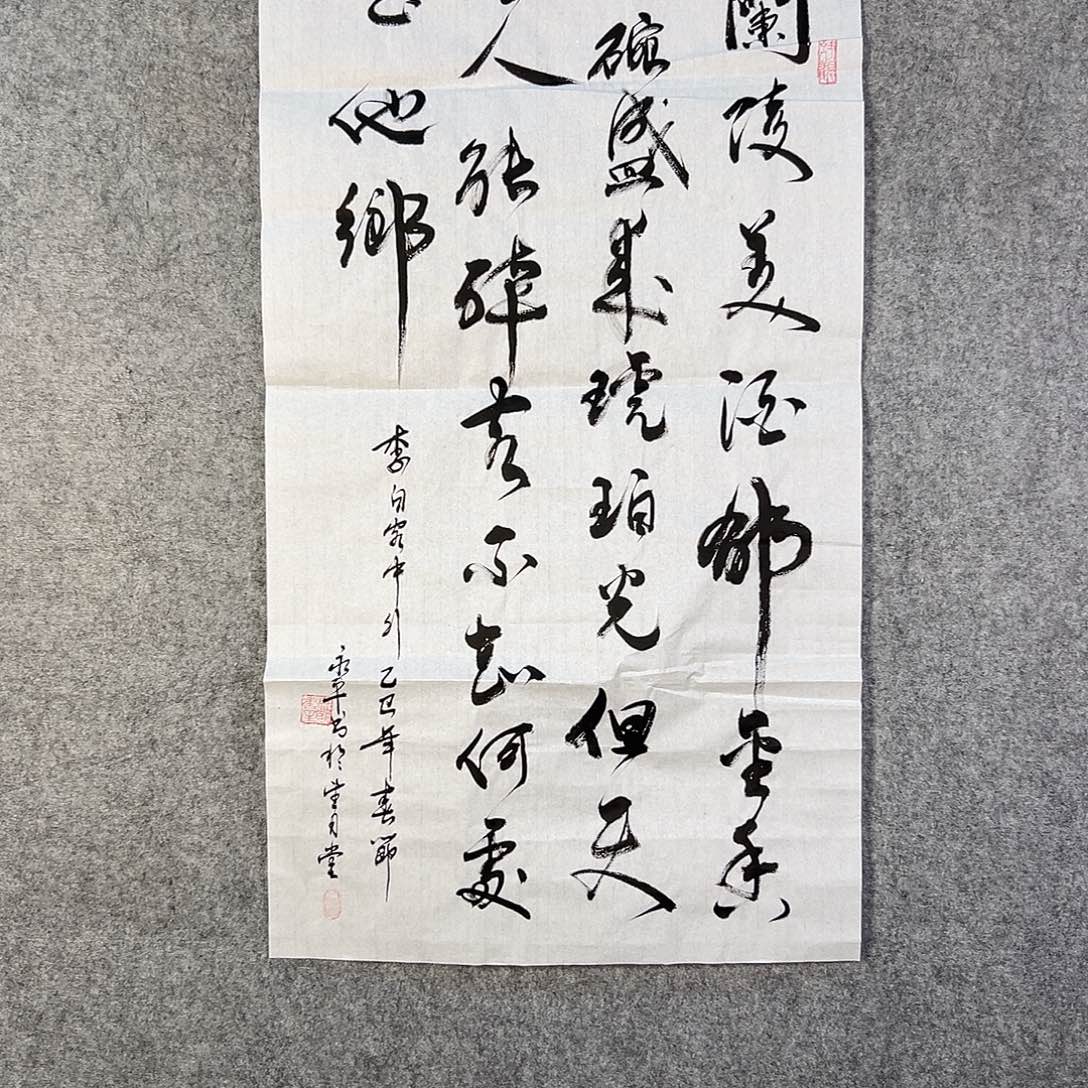 蘭陵美酒鬱金香
碗盛来琥珀光但天
人能醉客不知何處
是他鄉
李白客中行乙巳年春節
永平书於堂月堂